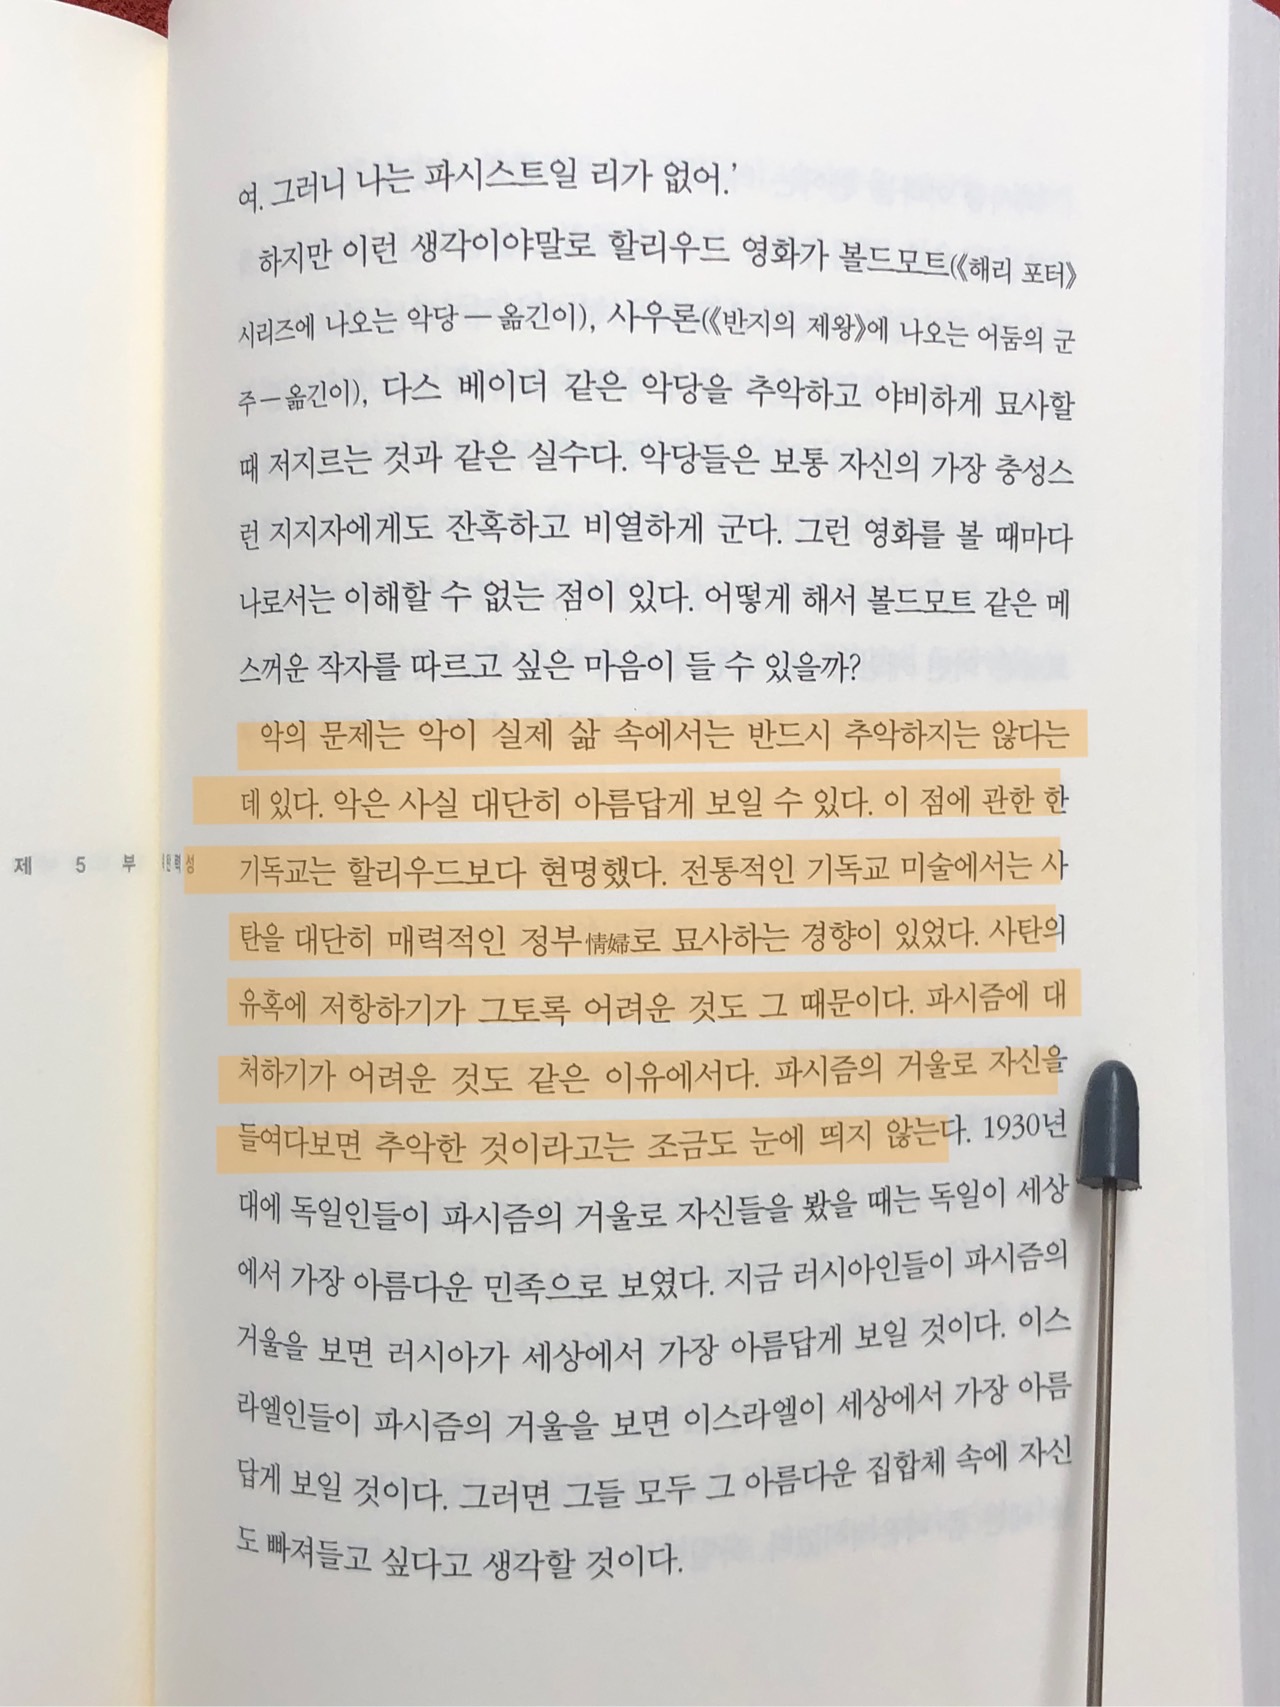 여. 그러니 나는 파시스트일 리가 없어.’
하지만 이런 생각이야말로 할리우드 영화가 볼드모트(《해리 포터》
시리즈에 나오는 악당 — 옮긴이), 사우론(《반지의 제왕》에 나오는 어둠의 군
주 — 옮긴이), 다스 베이더 같은 악당을 추악하고 야비하게 묘사할
때 저지르는 것과 같은 실수다. 악당들은 보통 자신의 가장 충성스
런 지지자에게도 잔혹하고 비열하게 군다. 그런 영화를 볼 때마다
나로서는 이해할 수 없는 점이 있다. 어떻게 해서 볼드모트 같은 메
스꺼운 작자를 따르고 싶은 마음이 들 수 있을까?
악의 문제는 악이 실제 삶 속에서는 반드시 추악하지는 않다는
데 있다. 악은 사실 대단히 아름답게 보일 수 있다. 이 점에 관한 한
기독교는 할리우드보다 현명했다. 전통적인 기독교 미술에서는 사
탄을 대단히 매력적인 정부情婦로 묘사하는 경향이 있었다. 사탄의
유혹에 저항하기가 그토록 어려운 것도 그 때문이다. 파시즘에 대
처하기가 어려운 것도 같은 이유에서다. 파시즘의 거울로 자신을
들여다보면 추악한 것이라고는 조금도 눈에 띄지 않는다. 1930년
대에 독일인들이 파시즘의 거울로 자신들을 봤을 때는 독일이 세상
에서 가장 아름다운 민족으로 보였다. 지금 러시아인들이 파시즘의
거울을 보면 러시아가 세상에서 가장 아름답게 보일 것이다. 이스
라엘인들이 파시즘의 거울을 보면 이스라엘이 세상에서 가장 아름
답게 보일 것이다. 그러면 그들 모두 그 아름다운 집합체 속에 자신
도 빠져들고 싶다고 생각할 것이다.
제 5 부